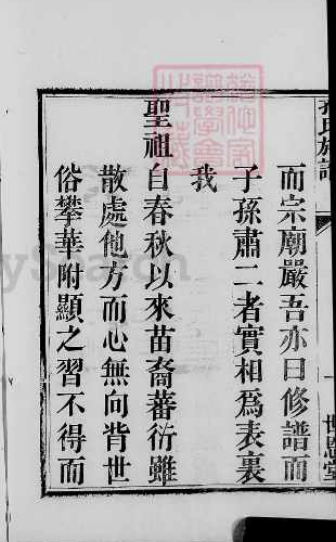 氏族譜
而宗廟嚴吾亦曰修譜而
子孫肅二者實相爲表裏
我
聖祖自春秋以來苗裔蕃衍雖
散處他方而心無向背世
俗攀華附顯之習不得而